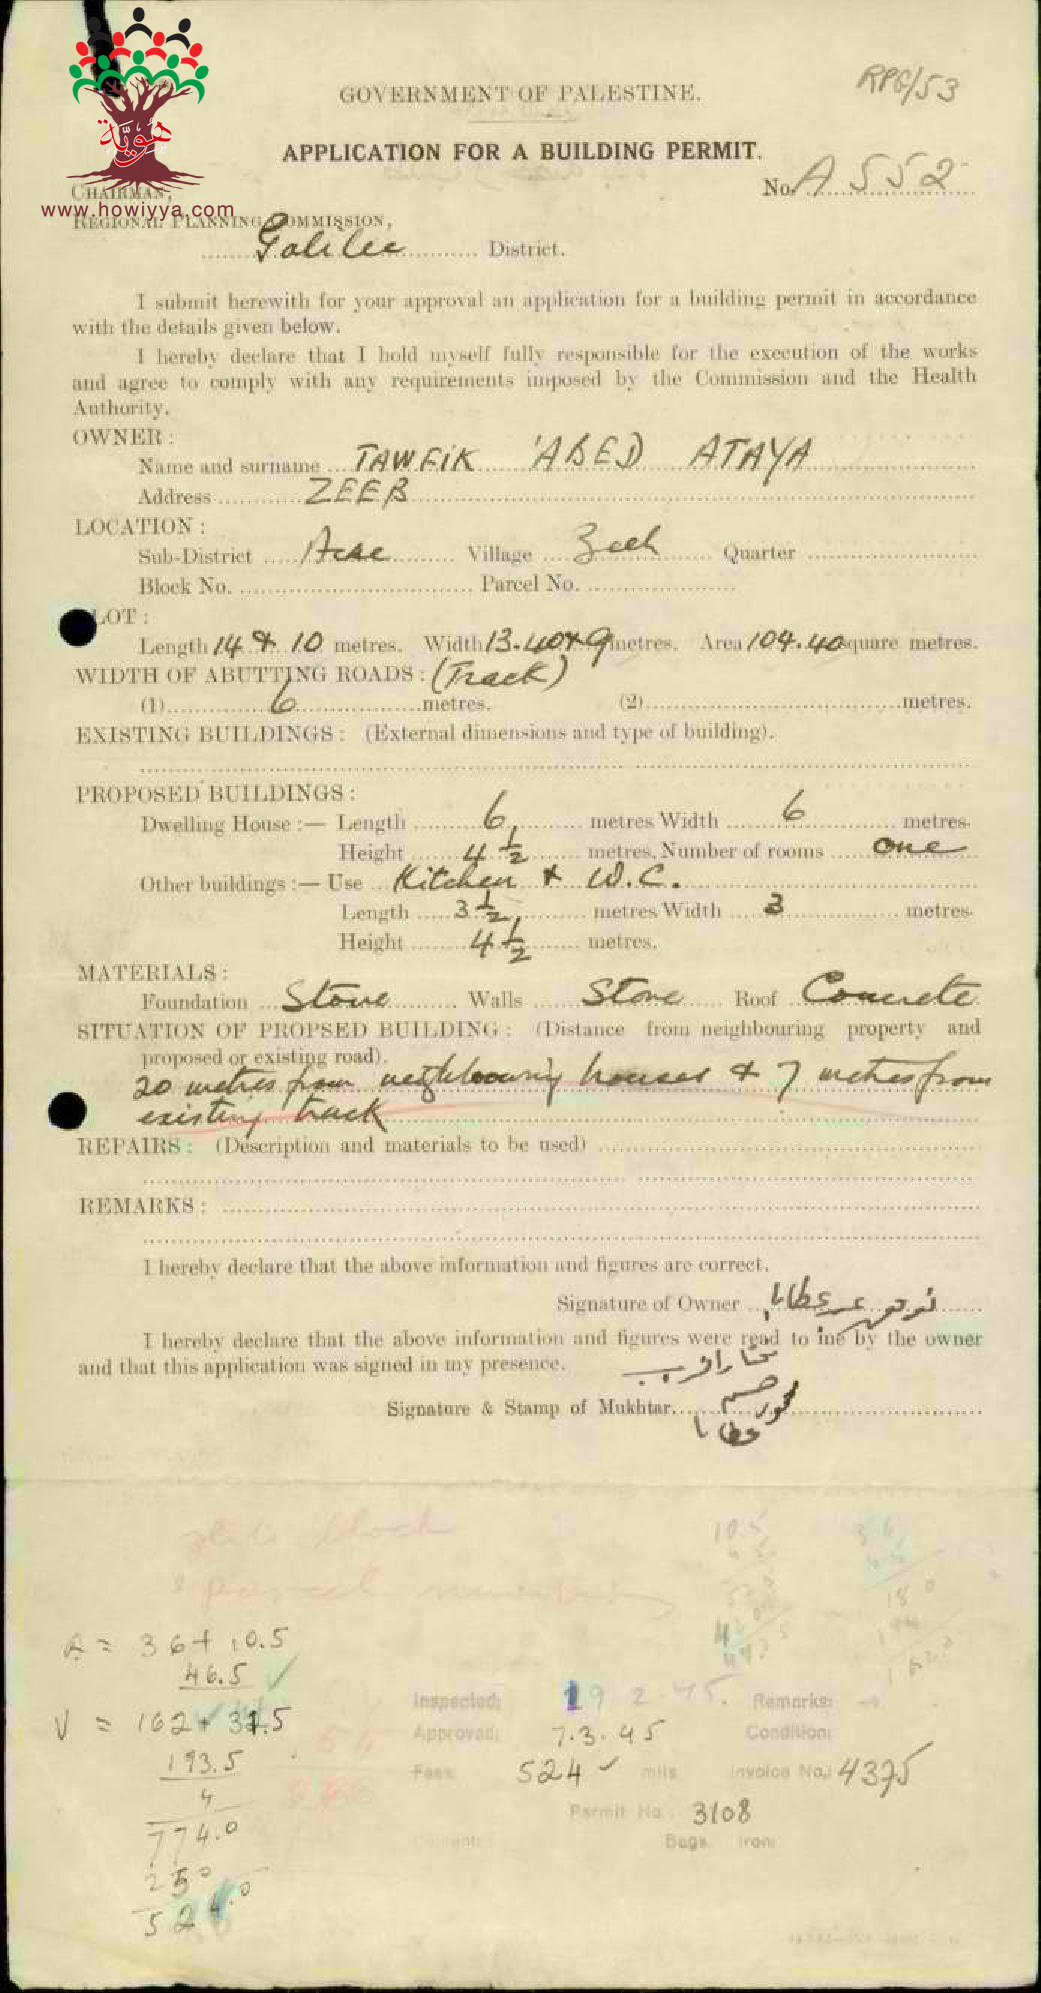 RPG/53
GOVERNMENT OF PALESTINE.
APPLICATION FOR A BUILDING PERMIT.
No. A 552
هويّة
www.howiyya.com
CHAIRMAN,
REGIONAL PLANNING COMMISSION,
Galilee District.
I submit herewith for your approval an application for a building permit in accordance
with the details given below.
I hereby declare that I hold myself fully responsible for the execution of the works
and agree to comply with any requirements imposed by the Commission and the Health
Authority.
OWNER :
Name and surname TAWFIK 'ABED ATAYA
Address ZEEB
LOCATION :
Sub-District Acre Village Zeeb Quarter
Block No. Parcel No.
LOT :
Length 14 & 10 metres. Width 13.40 & 9 metres. Area 104.40 square metres.
WIDTH OF ABUTTING ROADS : (Track)
(1) 6 metres. (2) metres.
EXISTING BUILDINGS : (External dimensions and type of building).
PROPOSED BUILDINGS :
Dwelling House :— Length 6 metres Width 6 metres.
Height 4 1/2 metres. Number of rooms one
Other buildings :— Use Kitchen & W.C.
Length 3 1/2 metres Width 3 metres.
Height 4 1/2 metres.
MATERIALS :
Foundation Stone Walls Stone Roof Concrete
SITUATION OF PROPSED BUILDING : (Distance from neighbouring property and
proposed or existing road).
20 metres from neighbouring houses & 7 metres from
existing track
REPAIRS : (Description and materials to be used)
REMARKS :
I hereby declare that the above information and figures are correct.
Signature of Owner عطايا
I hereby declare that the above information and figures were read to me by the owner
and that this application was signed in my presence.
Signature & Stamp of Mukhtar
عطايا
block
parcel
A = 36 + 10.5
46.5
V = 162 + 31.5
193.5
4
774.0
250
524.0
Inspected: 19 2.45. Remarks:
Approved: 7.3.45 Condition:
Fees 524 mils Invoice No.: 4375
Permit No. 3108
Cement: Bags Iron: